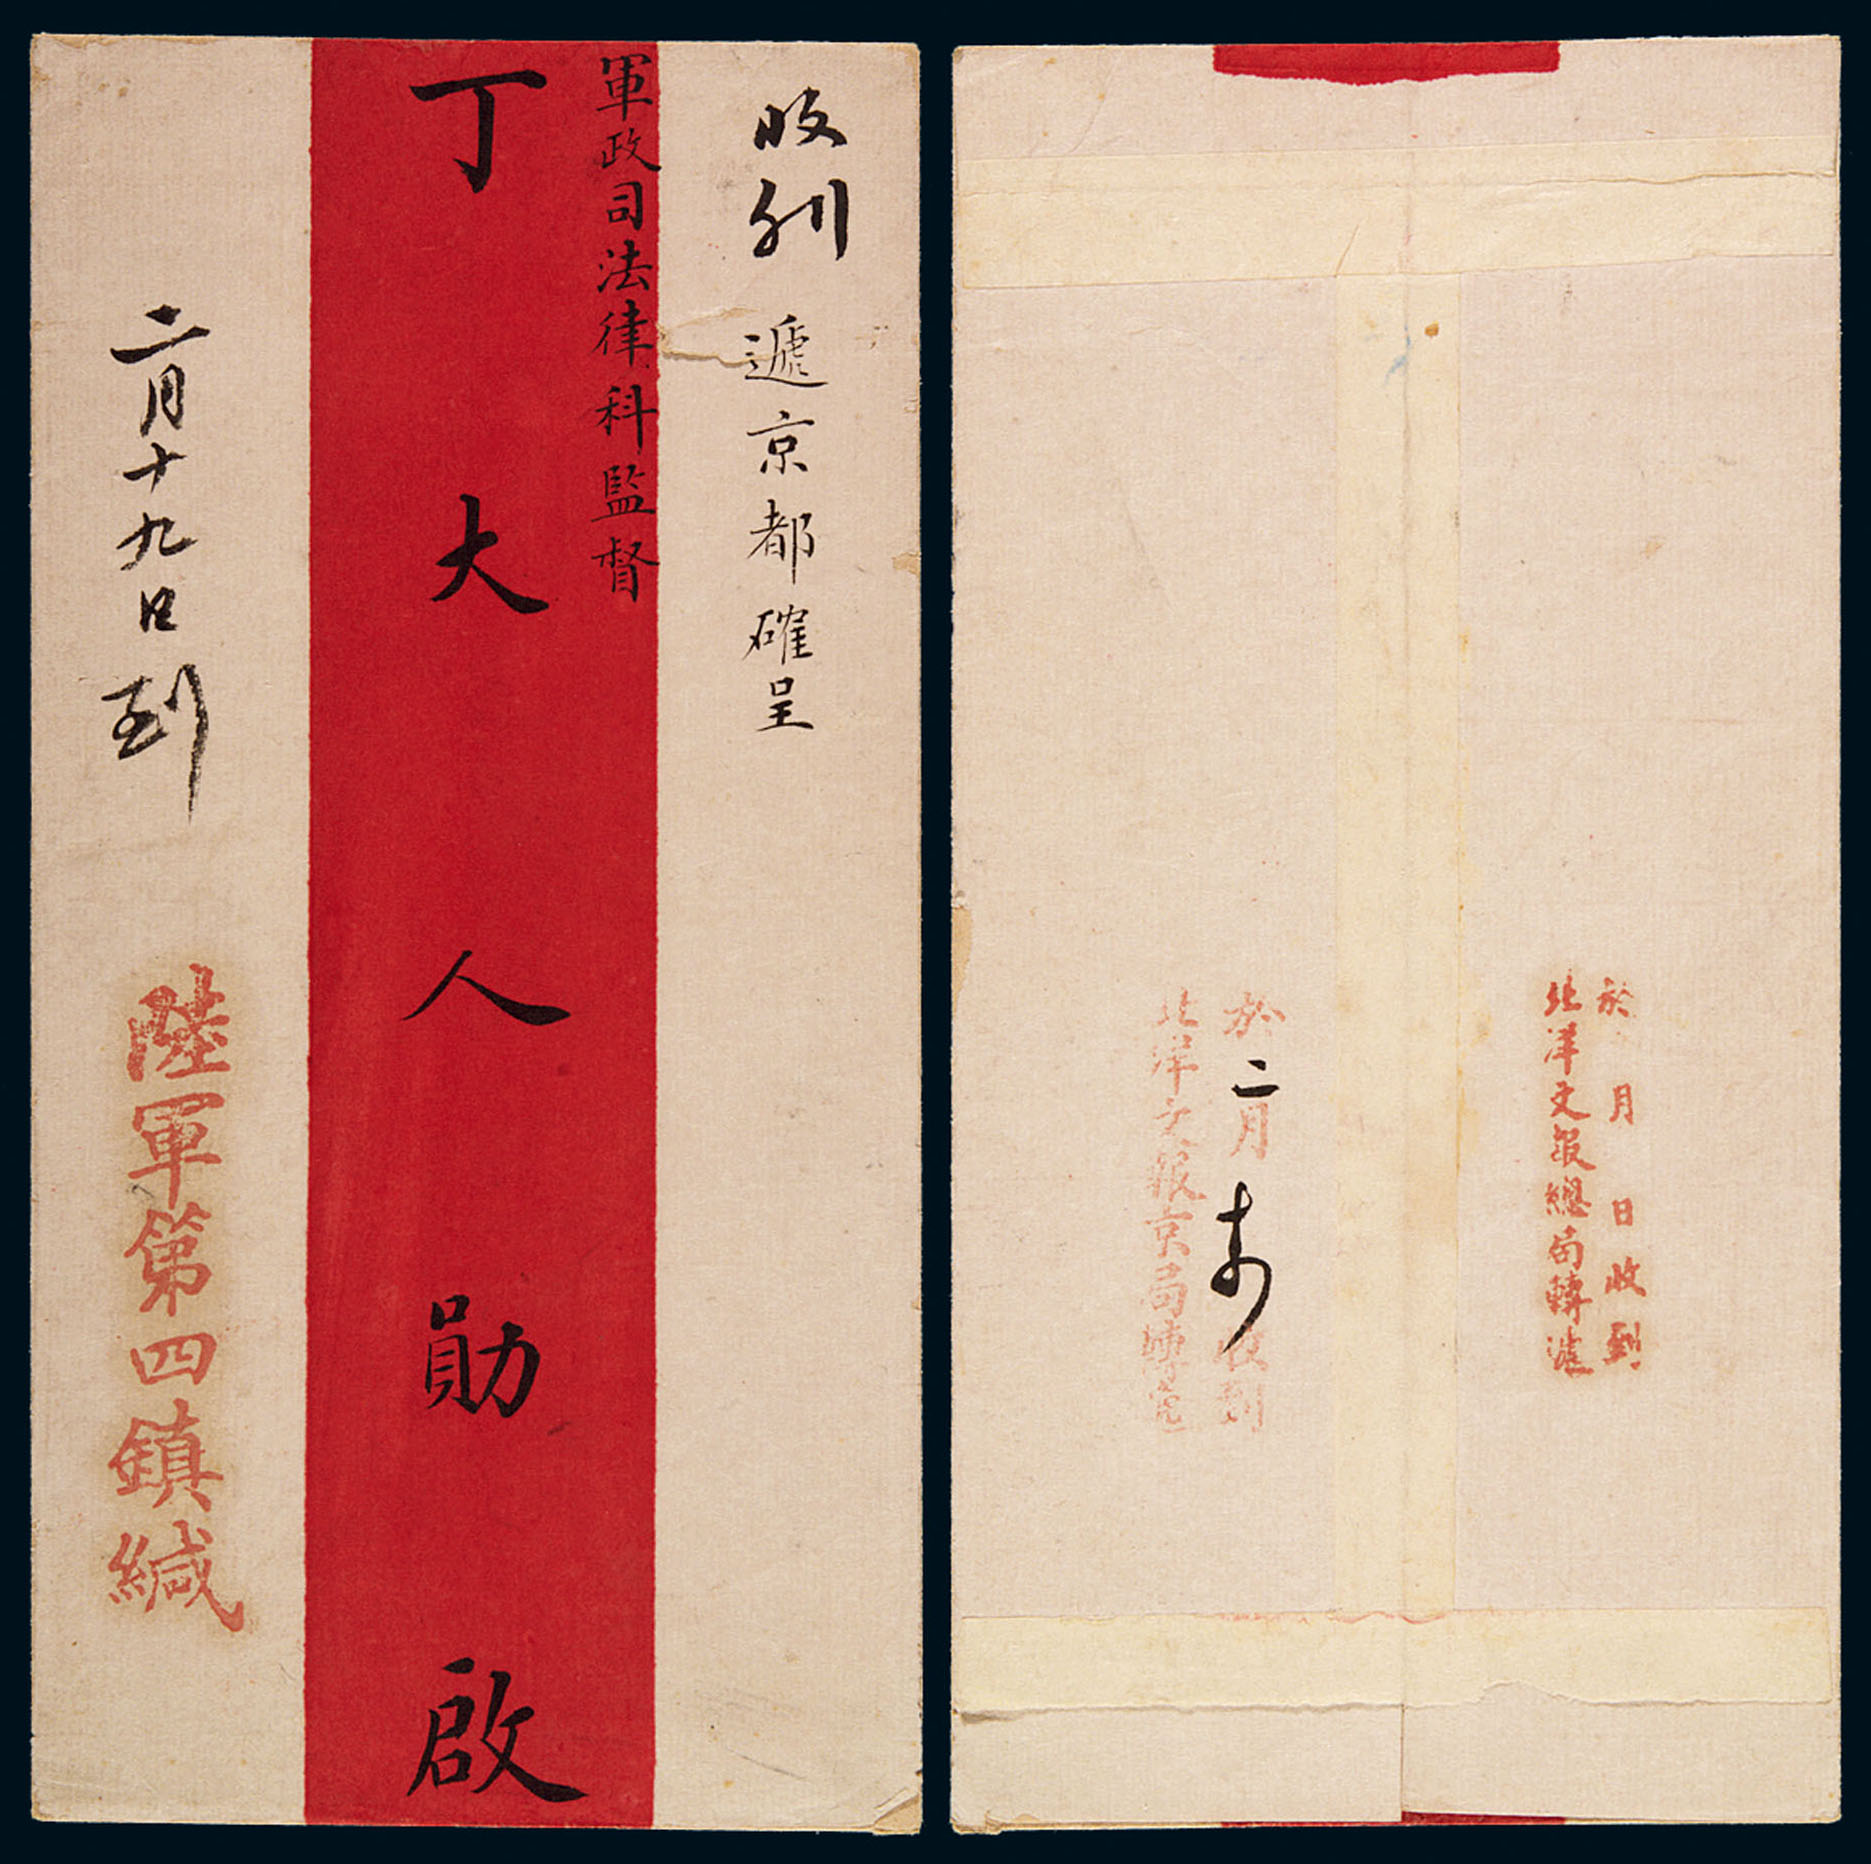 遞京都確呈
軍政司法律科監督
丁大人勛啟
二月十九日到
陸軍第四鎮緘
於 月 日收到
北洋文報總局轉遞
於二月 收到
北洋文報京局轉遞